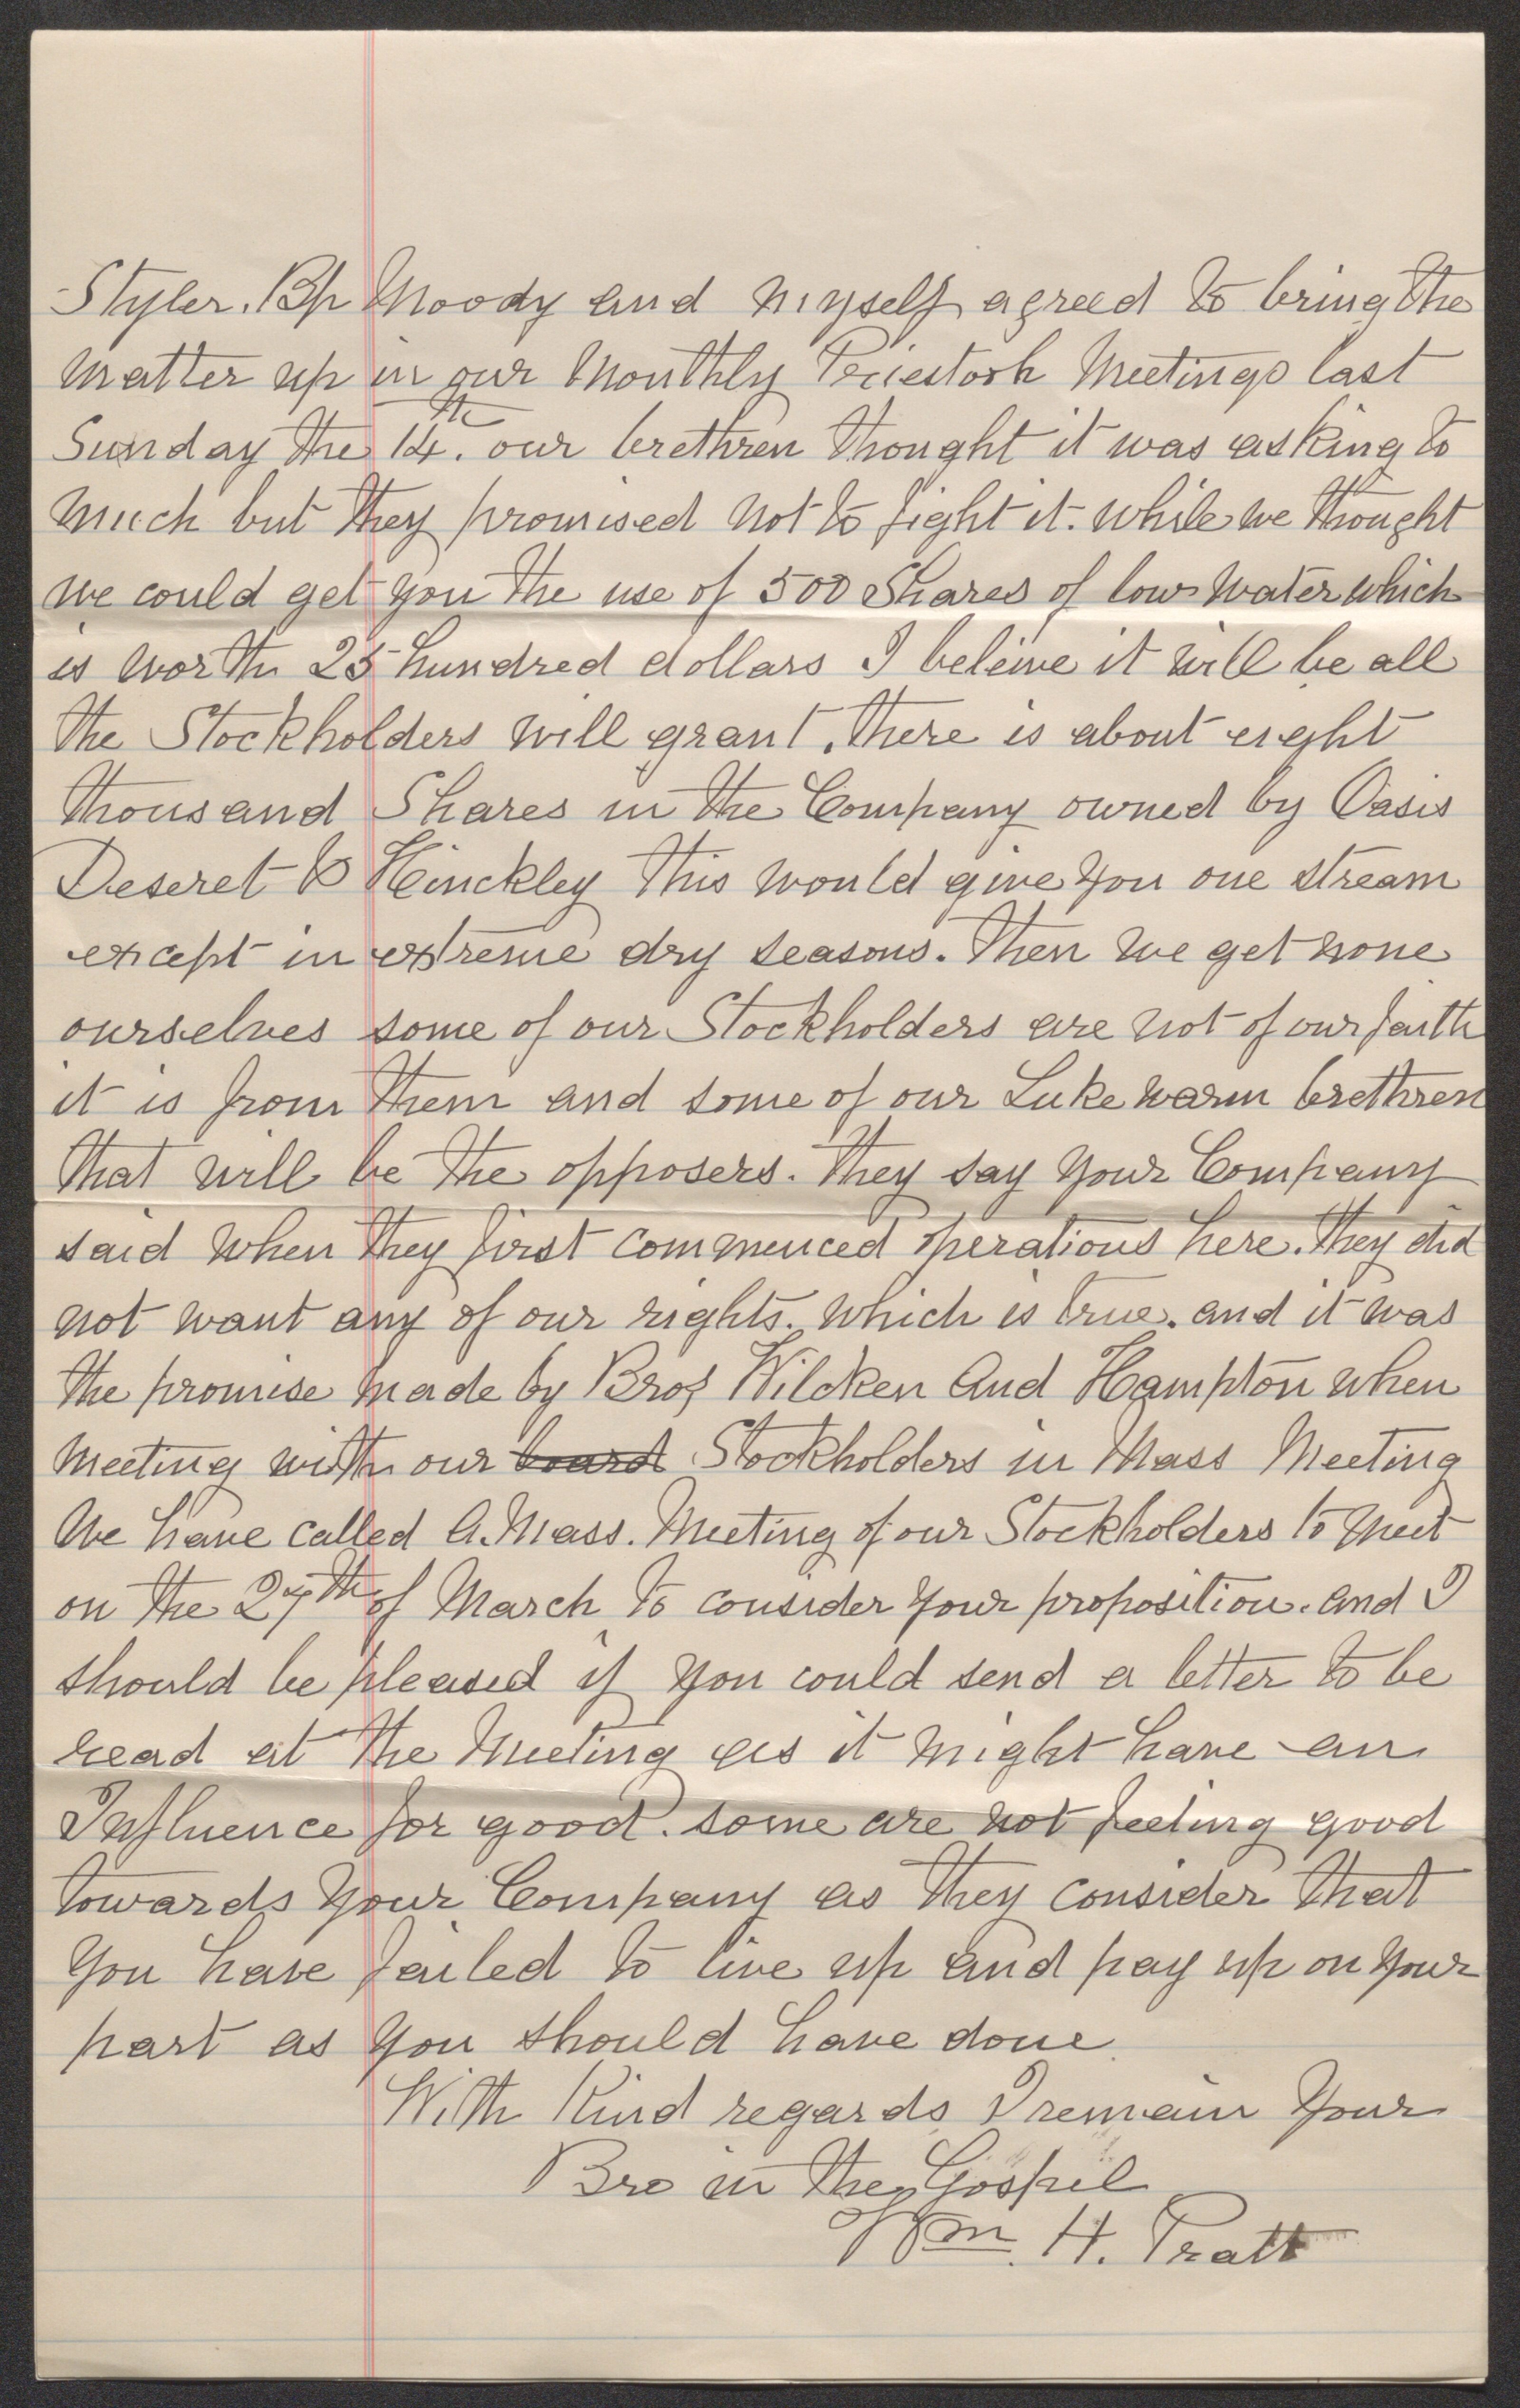 Styler. Bp Moody and myself agreed to bring the
matter up in our Monthly Priestooh Meetings last
Sunday the 14th. our brethren thought it was asking to
much but they promised not to fight it. while we thought
we could get you the use of 500 Shares of low water which
is worth 25 hundred dollars I beleive it will be all
the Stockholders will grant. there is about eight
thousand Shares in the Company owned by Oasis
Deseret & Hinckley this would give you one stream
except in extreme dry seasons. then we get none
ourselves some of our Stockholders are not of our faith
it is from them and some of our Luke warm brethren
that will be the opposers. they say your Company
said when they first commenced operations here. they did
not want any of our rights. which is true. and it was
the promise made by Bros Wilcken And Hampton when
meeting with our board Stockholders in Mass Meeting
We have called A. Mass. Meeting of our Stockholders to meet
on the 27th of March to consider your proposition. and I
should be pleased if you could send a letter to be
read at the Meeting as it might have an
Influence for good. some are not feeling good
towards your Company as they consider that
you have failed to live up and pay up on your
part as you should have done
With Kind regards I remain your
Bro in the Gospel
Wm. H. Pratt